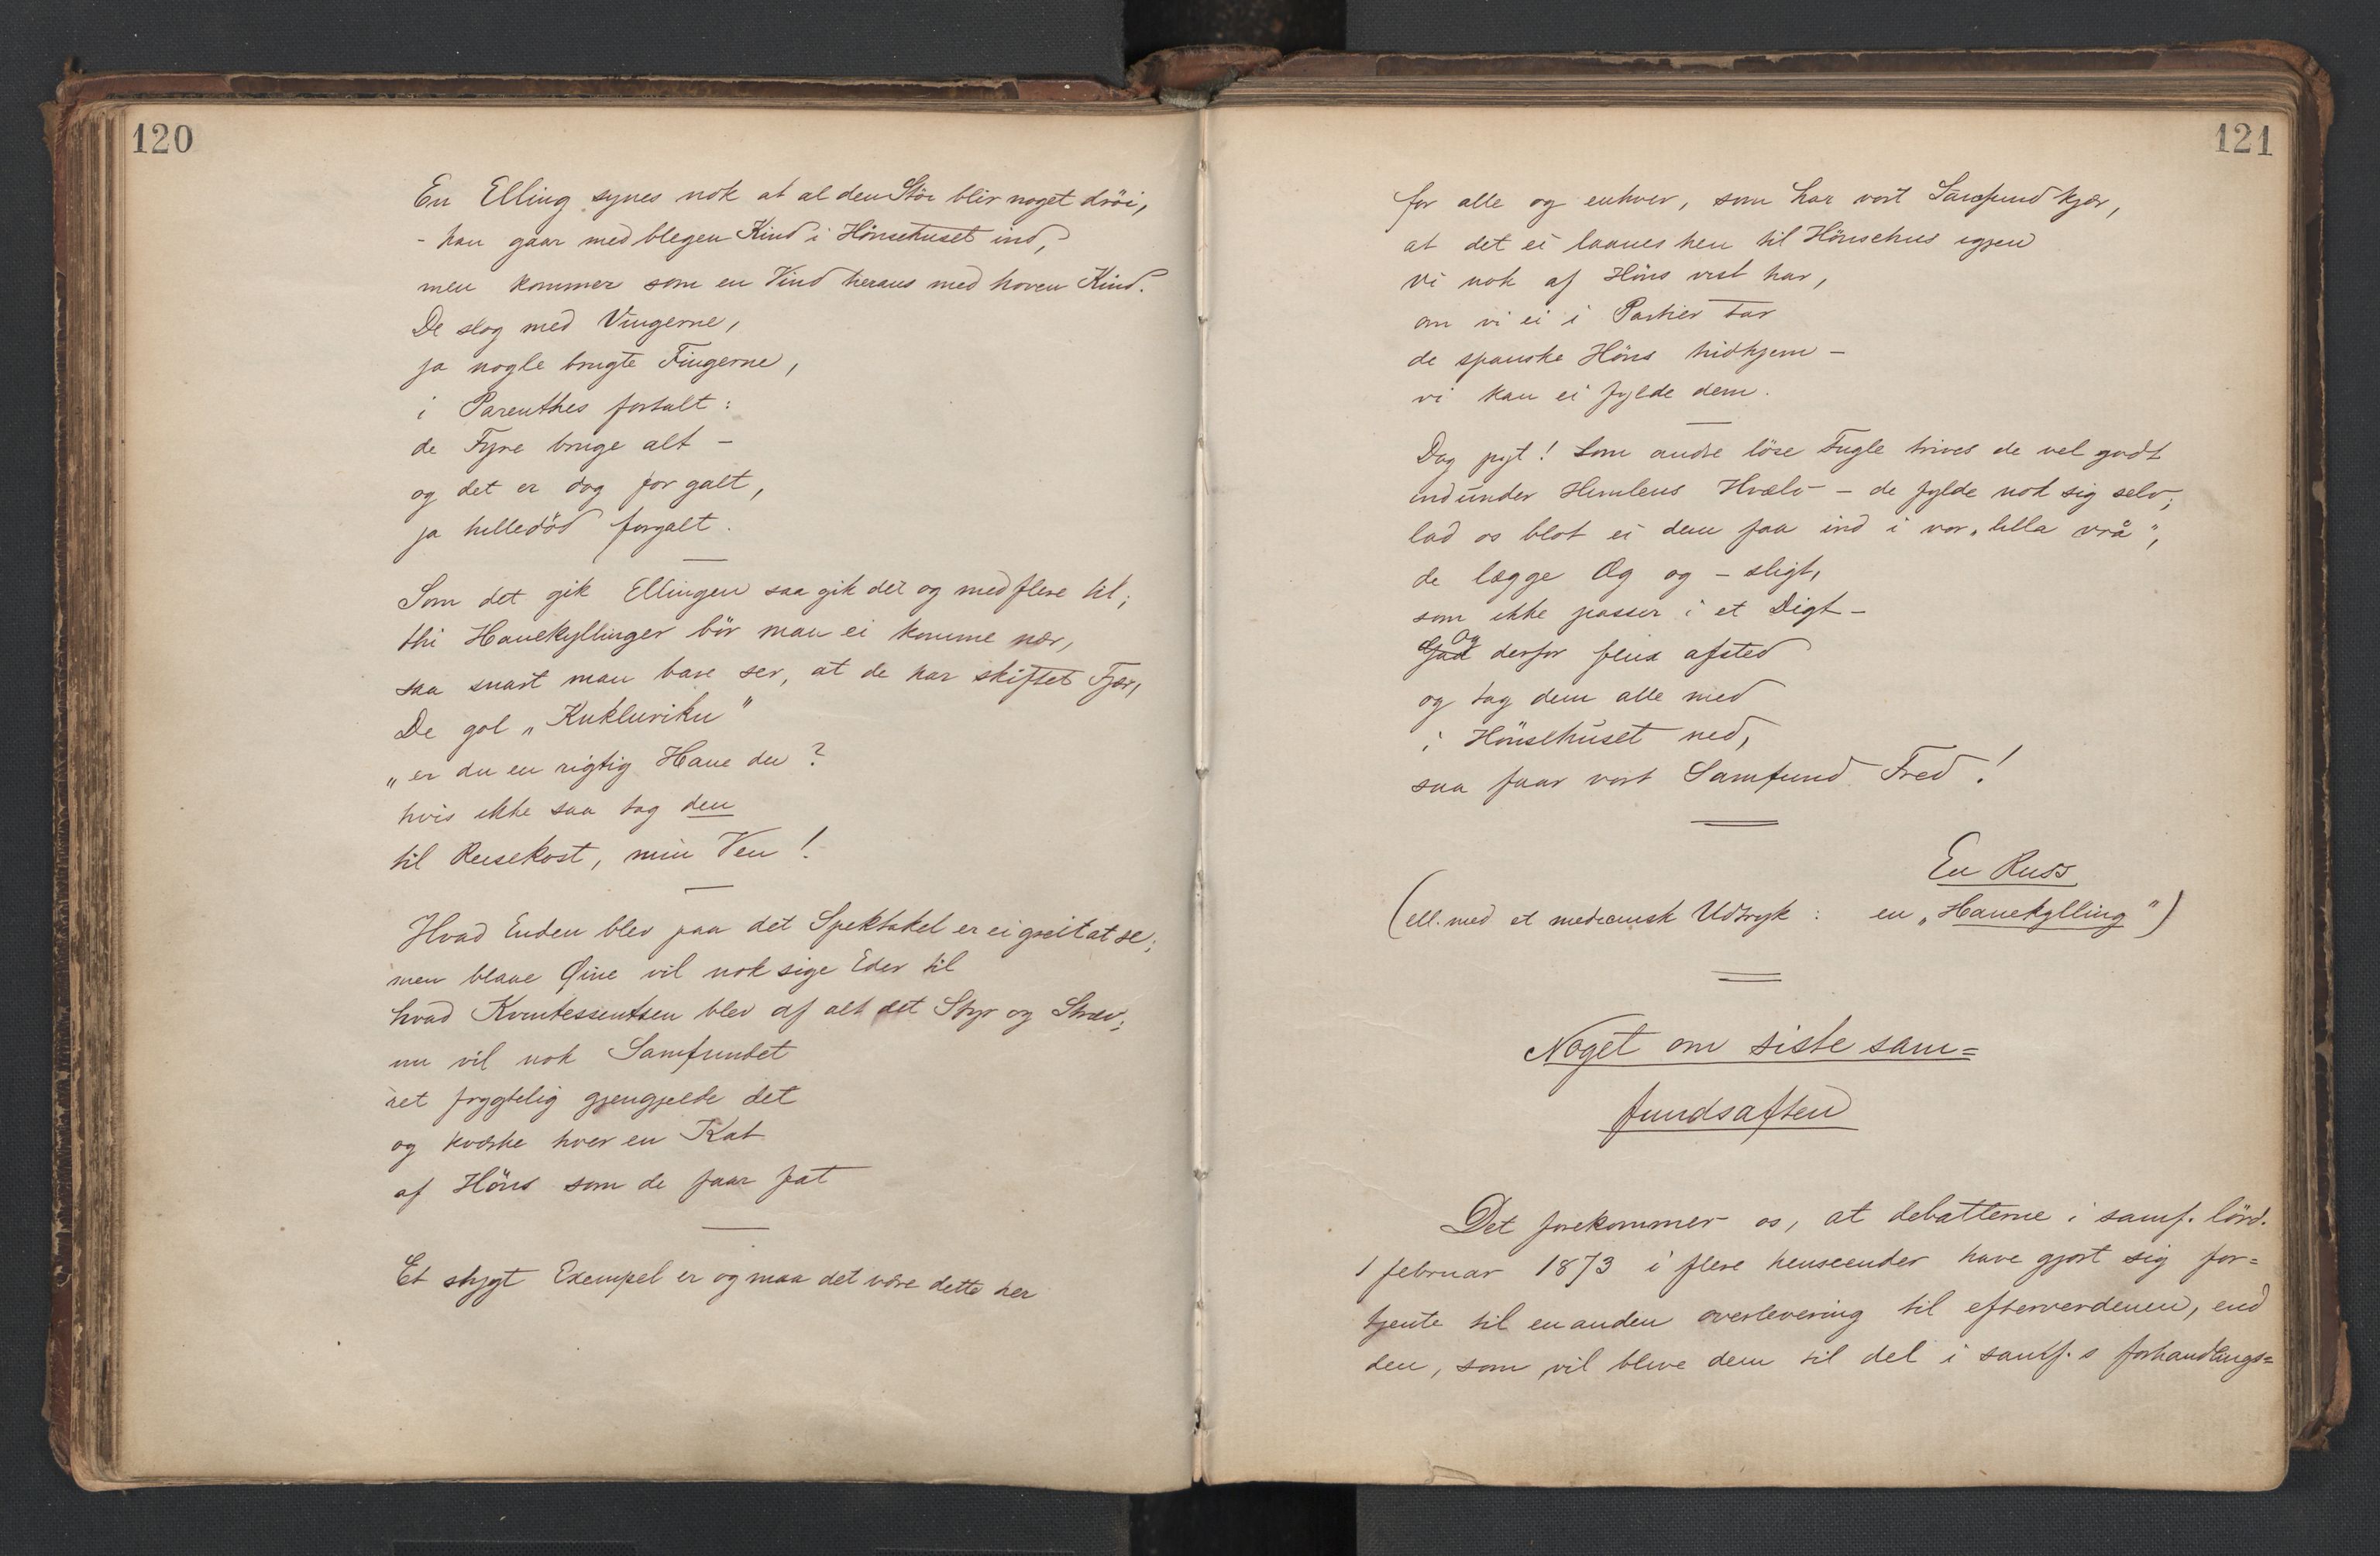 120
En Elling synes nok at al den Stöi blir noget dröi,
- han gaar med blegen Kind i Hönsehuset ind,
men kommer som en Vind heraus med hoven Kind.
De slog med Vingerne,
ja nogle brugte Fingerne,
i Parenthes fortalt:
de Fyre bruge alt –
og det er dog for galt,
ja helledöd forgalt.
Som det gik Ellingen saa gik det og med flere til;
thi Hanekyllinger bör man ei komme nær,
saa snart man bare ser, at de har skiftet Fjær,
De gol „Kukluriku"
„er du en rigtig Hane du?
hvis ikke saa tag den
til Reisekost, min Ven!
Hvad Enden blev paa det Spektakel er ei greit at se;
men blaae Øine vil nok sige Eder til
hvad Kvintessentsen blev af alt det Styr og Stræv;
nu vil nok Samfundet
ret frygtelig gjengjelde det
og kværke hver en Kat
af Höns som de faar fat
Et stygt Exempel er og maa det være dette her
121
for alle og enhver, som har vort Samfund kjær,
at det ei laanes hen til Hönsehus igjen
Vi nok af Höns vist har,
om vi ei i Partier tar
de spanske Höns hidhjem –
vi kan ei fylde dem.
Dog pyt! Som andre löse Fugle trives de vel godt
indunder Himlens Hvælv – de fylde nok sig selv;
lad os blot ei dem faa ind i vor „lilla vrå",
de lægge Æg og – sligt,
som ikke passer i et Digt –
Og
derfor flux afsted
og tag dem alle med
i Hönsehuset ned,
saa faar vort Samfund Fred!
En Russ
(ell. med et medicinsk Udtryk: en „Hanekylling")
Noget om siste sam=
fundsaften
Det forekommer os, at debatterne i samf. lörd.
1 februar 1873 i flere henseender have gjort sig for=
tjente til en anden overlevering til efterverdenen, end
den, som vil blive dem til del i samf.s forhandlings=